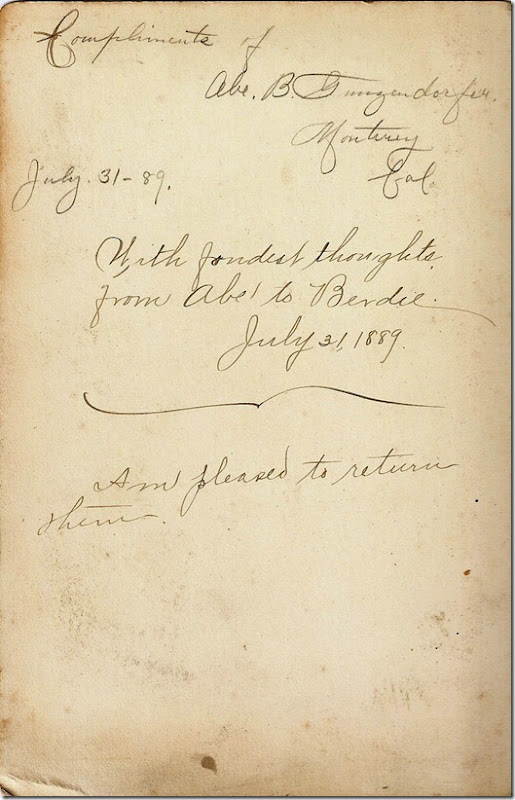 Compliments of
Abe. B. Gunzendorfer.
Monterey
Cal.
July. 31-89.
With fondest thoughts
from Abe' to Berdie.
July 31, 1889.
Am pleased to return
them.